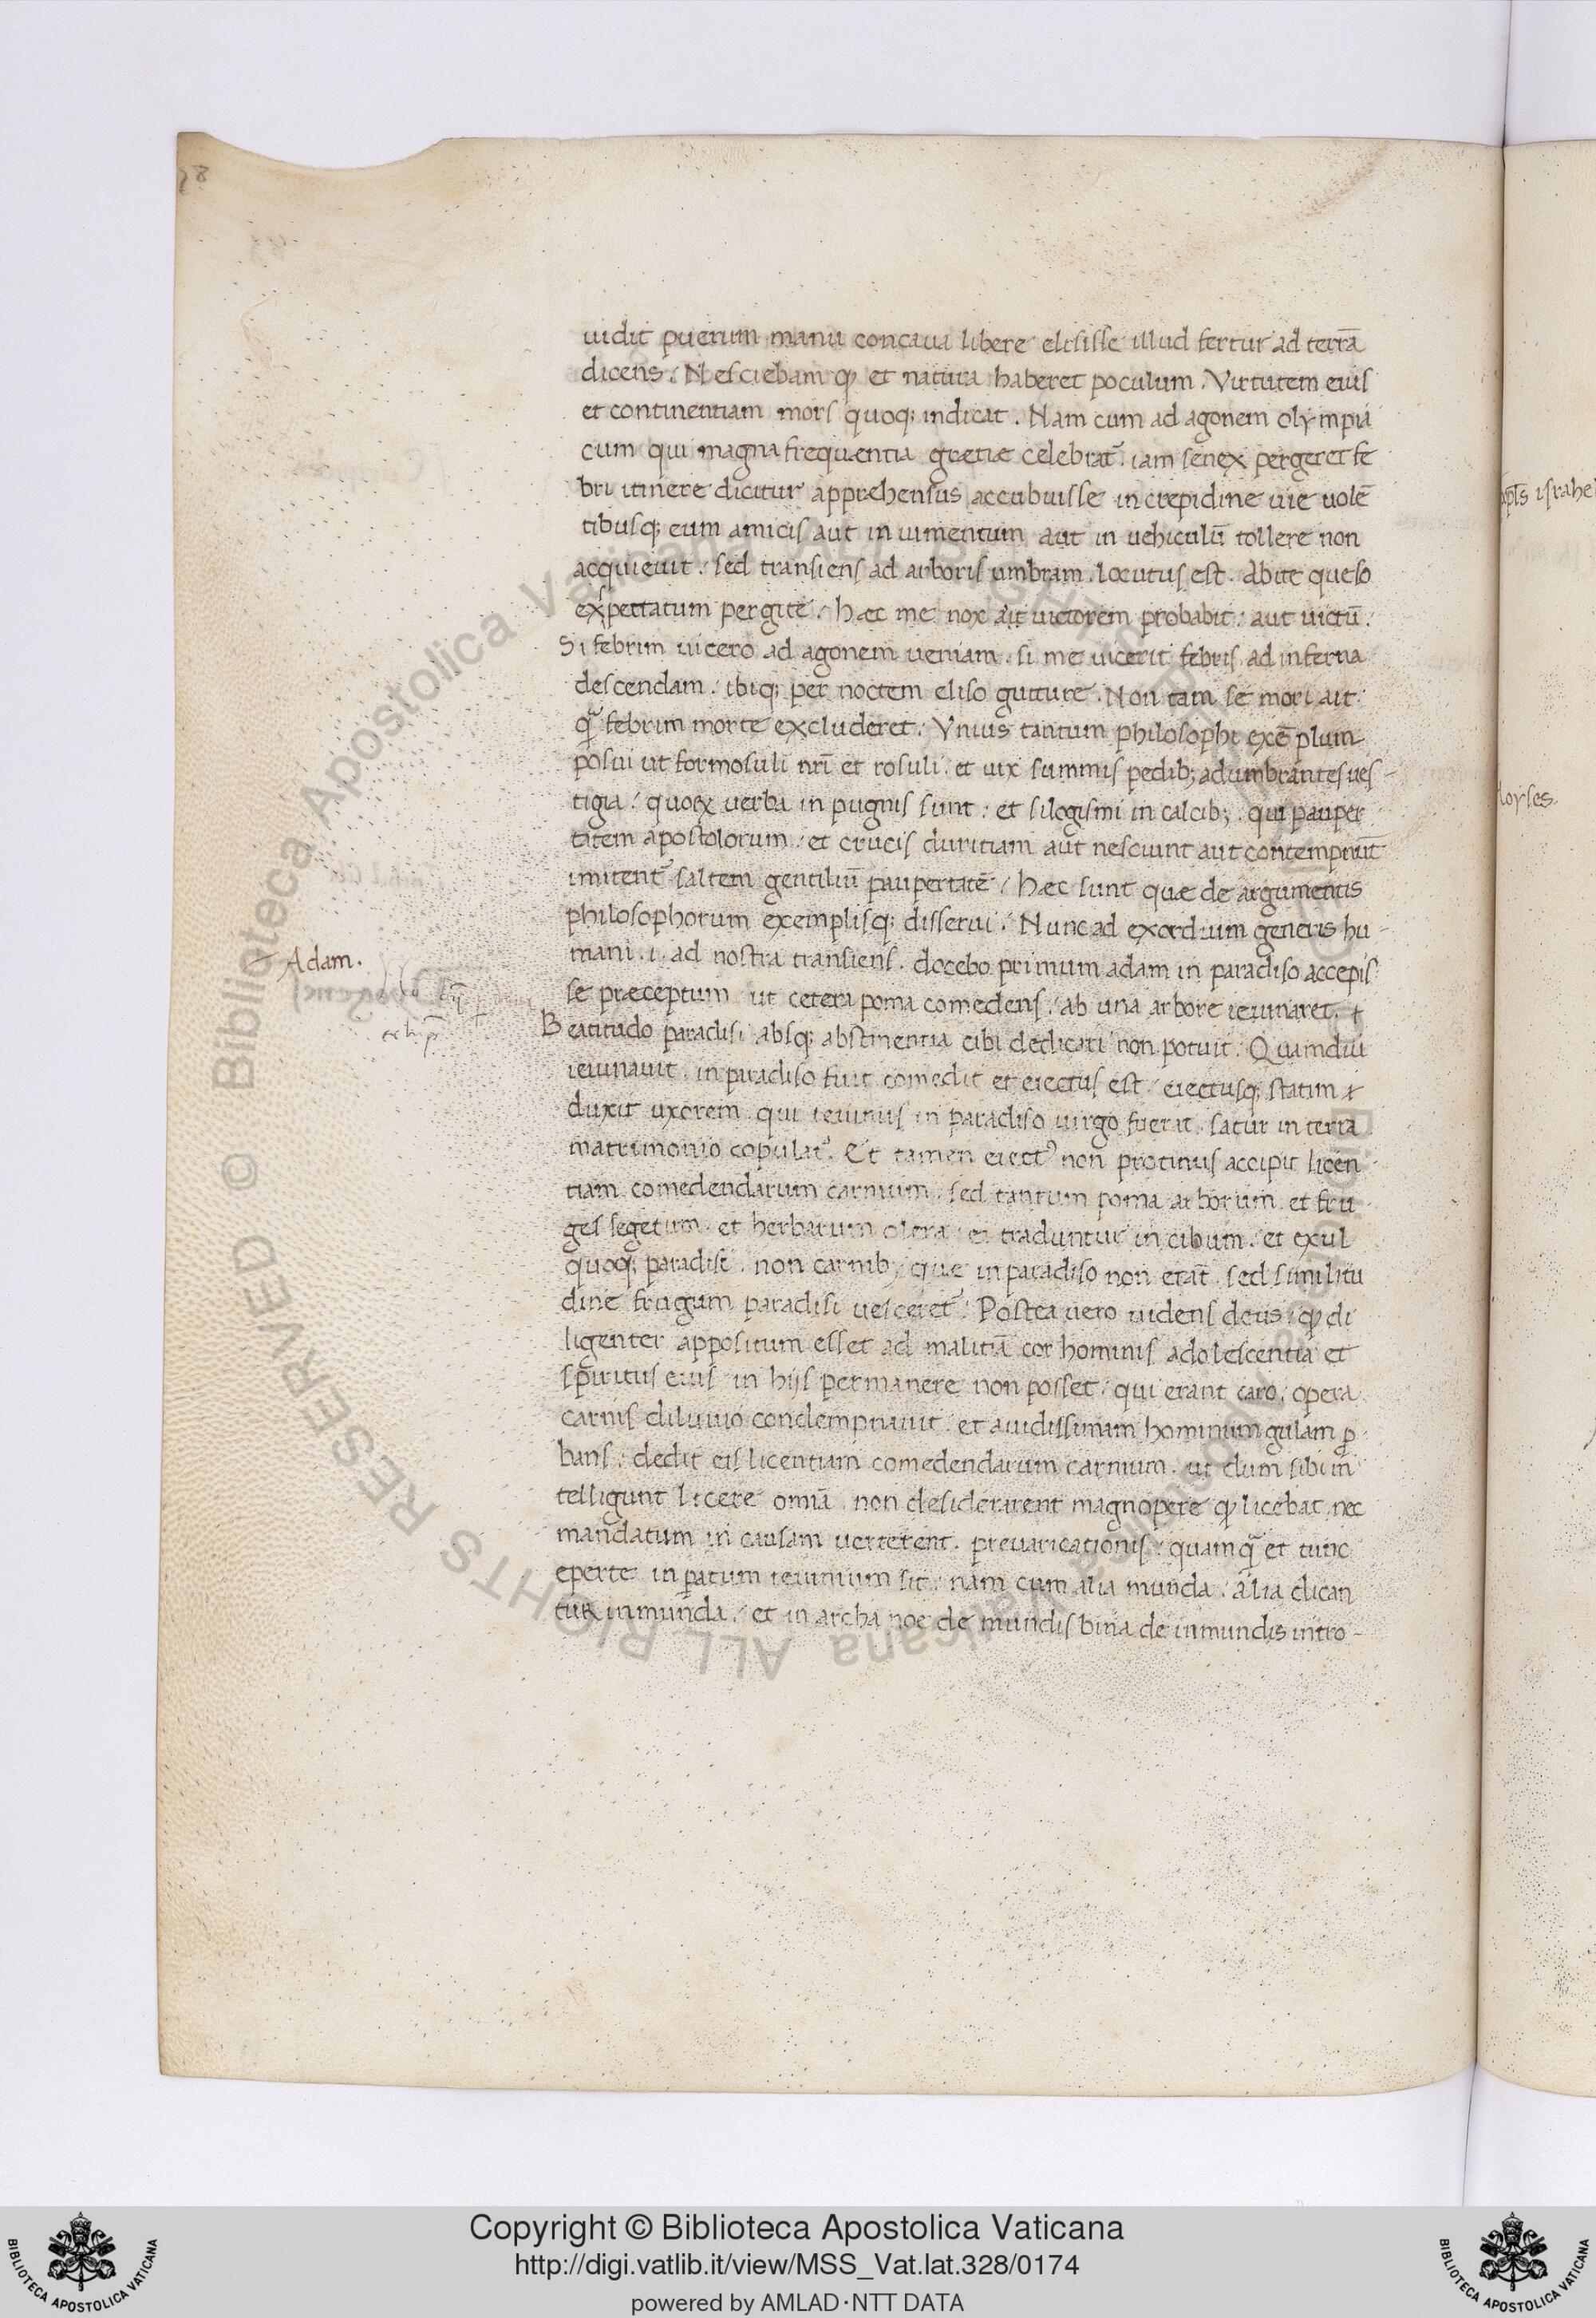 58
uidit puerum manu concaua libere elisisse illud fertur ad terrā
dicens. Nesciebam ꝙ et natura haberet poculum. Virtutem eius
et continentiam mors quoq; indicat. Nam cum ad agonem olympia
cum qui magna frequentia gretiæ celebrat᷑. iam senex pergeret fe
bri itinere dicitur appræhensus accubuisse in crepidine uie uolē
tibusq; eum amicis aut in iumentum aut in uehiculū tollere non
acquieuit. sed transiens ad arboris umbram. locutus est. Abite queso
expectatum pergite. hæc me nox aut uictorem probabit. aut uictū.
Si febrim uicero ad agonem ueniam. si me uicerit febris. ad inferna
descendam. ibiq; per noctem eliso gutture. Non tam se mori ait
q̄ febrim morte excluderet. Vnius tantum philosophi exēplum
posui ut formosuli nr̄i et rosuli. et uix summis pedib; adumbrantes ues
tigia. quoꝝ uerba in pugnis sunt. et silogismi in calcib; qui pauper
tatem apostolorum. et crucis duritiam aut nesciunt aut contempnūt
imitent᷑ saltem gentiliū paupertatē. Hæc sunt quæ de argumentis
philosophorum exemplisq; disserui. Nunc ad exordium generis hu
mani. i. ad nostra transiens. docebo primum adam in paradiso accepis
se præceptum ut cetera poma comedens. ab una arbore ieiunaret.
Beatitudo paradisi absq; abstinentia cibi dedicari non potuit. Quamdiu
ieiunauit. in paradiso fuit comedit et eiectus est. eiectusq; statim
duxit uxorem. qui ieiunus in paradiso uirgo fuerat. satur in terra
matrimonio copulat᷑. Et tamen eiectꝰ non protinus accipit licen
tiam comedendarum carnium. sed tantum poma arborum et fru
ges segetum. et herbarum olera ei traduntur in cibum. et exul
quoq; paradisi. non carnib; que in paradiso non erāt. sed similitu
dine frugum paradisi uesceret᷑. Postea uero uidens deus ꝙ di
ligenter appositum esset ad malitiā cor hominis adolescentia et
spiritus eius in hijs permanere non posset. qui erant caro. opera
carnis diluuio condempnauit. et auidissimam hominum gulam ꝓ
bans. dedit eis licentiam comedendarum carnium. ut dum sibi in
telligunt licere omīa non desiderarent magnopere ꝙ licebat. nec
mandatum in causam uerterent. preuaricationis. quamq̄ et tunc
ex parte inperatum ieiunium sit. nam cum alia munda. alia dican
tuR inmunda. et in archa noe de mundis bina de inmundis intro
Adam.
israhel
loyses.
© Biblioteca Apostolica Vaticana ALL RIGHTS RESERVED
Copyright © Biblioteca Apostolica Vaticana
http://digi.vatlib.it/view/MSS_Vat.lat.328/0174
powered by AMLAD·NTT DATA
BIBLIOTECA APOSTOLICA VATICANA
BIBLIOTECA APOSTOLICA VATICANA